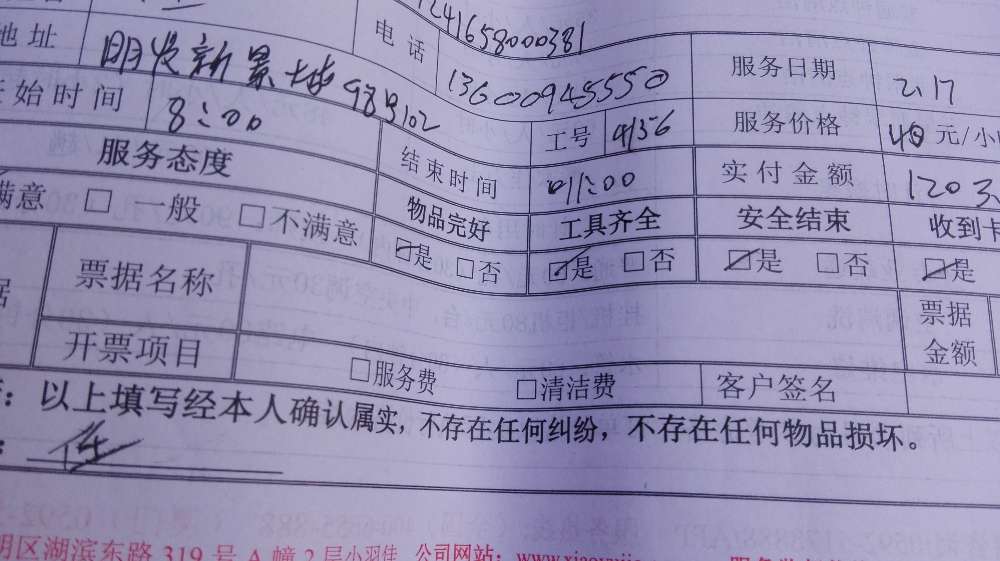 12416580000381
地址 明发新景城98号102 电话 13600945550 服务日期 2.17
始时间 8:00 工号 4156 服务价格 40元/小
服务态度 结束时间 11:00 实付金额 120
满意 □一般 □不满意 物品完好 工具齐全 安全结束 收到卡
☑是 □否 ☑是 □否 ☑是 □否 ☑是
票据名称 票据金额
开票项目 □服务费 □清洁费 客户签名
：以上填写经本人确认属实，不存在任何纠纷，不存在任何物品损坏。
明区湖滨东路319号A幢2层小羽佳 公司网站：www.xiaoyujia